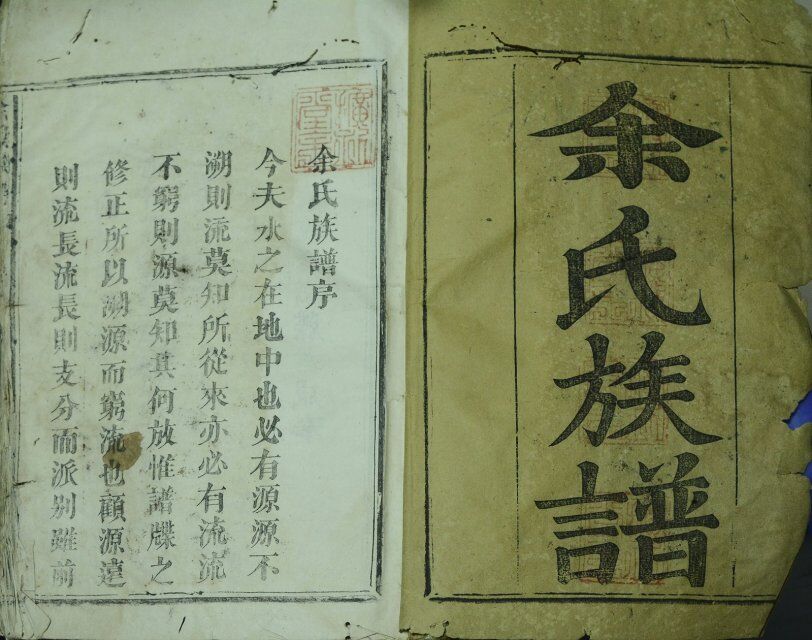 余氏族譜
余氏族譜序
今夫水之在地中也必有源源不
溯則流莫知所從來亦必有流流
不窮則源莫知其何放惟譜牒之
修正所以溯源而窮流也顧源遠
則流長流長則支分而派别雖前